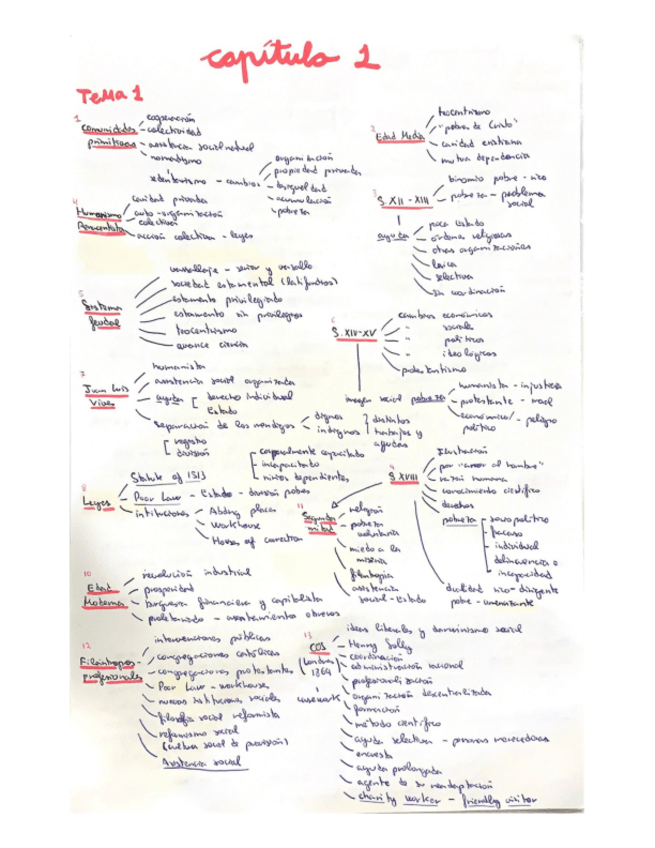 capítulo 1
Tema 1
1 Comunidades primitivas
cooperación
colectividad
asistencia social natural
nomadismo
sedentarismo - cambios
organización
propiedad privada
desigualdad
acumulación
pobreza
2 Edad Media
teocentrismo
"pobres de Cristo"
caridad cristiana
mutua dependencia
3 S. XII - XIII
binomio pobre - rico
pobreza - problema social
ayuda
poca Estado
órdenes religiosas
otras organizaciones
laica
selectiva
sin coordinación
4 Humanismo
caridad privada
auto-organización colectiva
acción colectiva - leyes
5 Sistema feudal
vasallaje - señor y vasallo
sociedad estamental (latifundios)
estamento privilegiado
estamento sin privilegios
teocentrismo
avance ciencia
6 S. XIV-XV
cambios económicos
" sociales
" políticos
" ideológicos
protestantismo
imagen social pobreza
humanista - injusticia
protestante - moral
económico/político - peligro
7 Juan Luis Vives
humanista
asistencia social organizada
ayuda
derecho individual
Estado
separación de los mendigos
dignos
indignos
distintos trabajos y ayudas
registro
división
corporalmente capacitado
incapacitado
niños dependientes
8 Leyes
Statute of 1513
Poor Law - Estado - división pobres
instituciones
Abding place
Workhouse
Houses of correction
9 S. XVIII
Ilustración
por "amor al hombre"
razón humana
conocimiento científico
derechos
pobreza
sociopolítico
fracaso
individual
delincuencia o incapacidad
dualidad rico - dirigente
pobre - amenazante
11 Segunda mitad
religión
pobreza voluntaria
miedo a la miseria
filantropía
asistencia social - Estado
10 Edad Moderna
revolución industrial
prosperidad
burguesía financiera y capitalista
proletariado - asentamientos obreros
12 Filántropos profesionales
intervenciones públicas
congregaciones católicas
congregaciones protestantes
Poor Law - workhouse
nuevas instituciones sociales
filosofía social reformista
reformismo social
(cultura social de previsión)
Asistencia social
13 COS
(Londres 1869)
casework
ideas liberales y darwinismo social
Henry Solly
coordinación
administración racional
profesionalización
organización descentralizada
formación
método científico
ayuda selectiva - personas merecedoras
encuesta
ayuda prolongada
agente de su readaptación
charity worker - friendly visitor